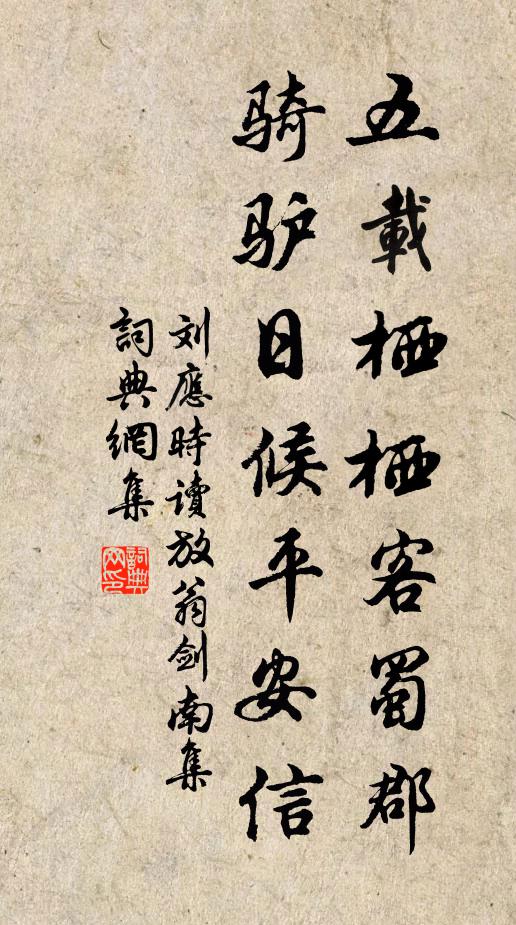 五載栖栖客蜀郡
骑驴日候平安信
刘應時讀放翁劍南集
詞典網集
詞典网印